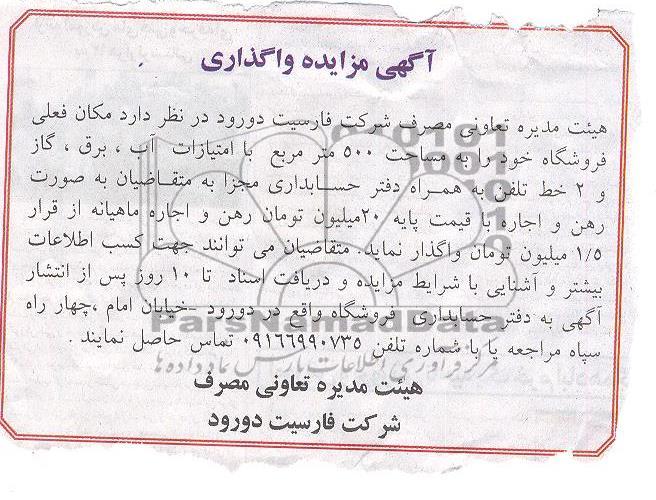 آگهی مزایده واگذاری
هیئت مدیره تعاونی مصرف شرکت فارسیت دورود در نظر دارد مکان فعلی
فروشگاه خود را به مساحت ۵۰۰ متر مربع با امتیازات آب ، برق ، گاز
و ۲ خط تلفن به همراه دفتر حسابداری مجزا به متقاضیان به صورت
رهن و اجاره با قیمت پایه ۲۰میلیون تومان رهن و اجاره ماهیانه از قرار
۱/۵ میلیون تومان واگذار نماید. متقاضیان می توانند جهت کسب اطلاعات
بیشتر و آشنایی با شرایط مزایده و دریافت اسناد تا ۱۰ روز پس از انتشار
آگهی به دفتر حسابداری فروشگاه واقع در دورود -خیابان امام ،چهار راه
سپاه مراجعه یا با شماره تلفن ۰۹۱۶۶۹۹۰۷۳۵ تماس حاصل نمایند .
هیئت مدیره تعاونی مصرف
شرکت فارسیت دورود
ParsNamadData
مرکز فرآوری اطلاعات پارس نماد داده‌ها